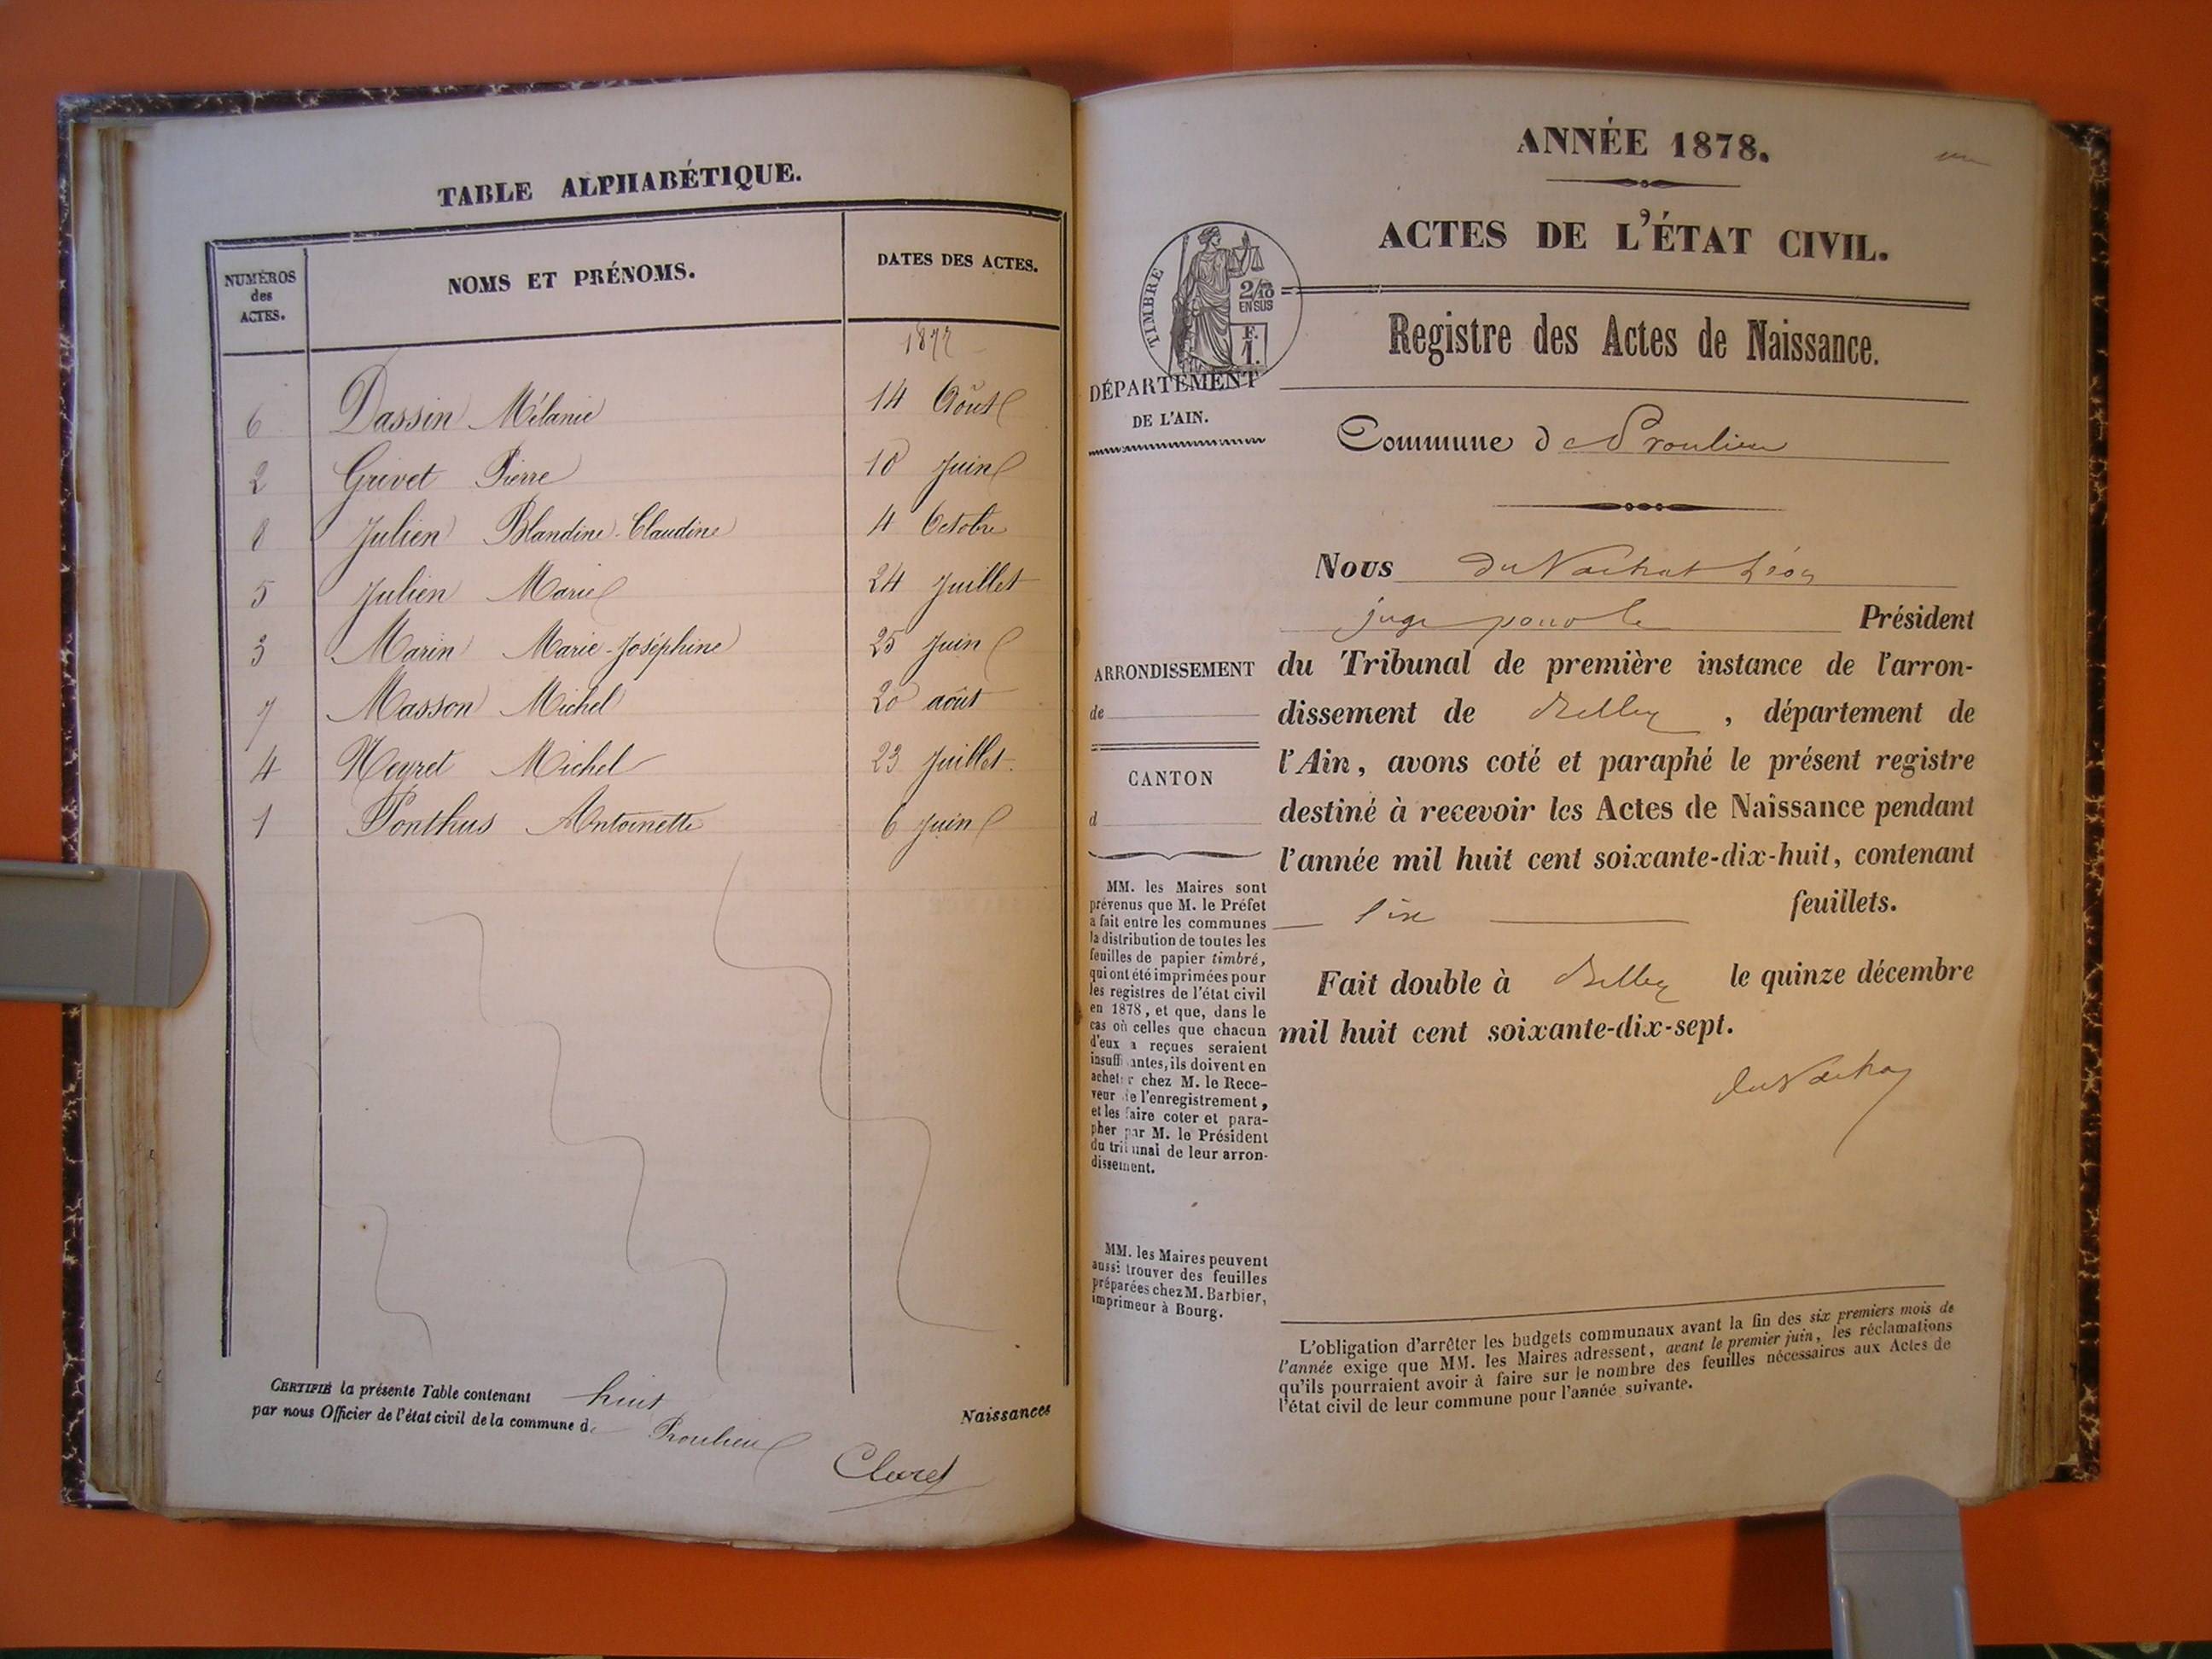 TABLE ALPHABÉTIQUE.
NUMÉROS
des
ACTES.
NOMS ET PRÉNOMS.
DATES DES ACTES.
1877
6 Dassin Mélanie 14 Août
2 Grivet Pierre 10 Juin
8 Julien Blandine-Claudine 4 Octobre
5 Julien Marie 24 Juillet
3 Marin Marie-Joséphine 25 Juin
7 Masson Michel 20 août
4 Neyret Michel 23 Juillet
1 Ponthus Antoinette 6 Juin
CERTIFIÉ la présente Table contenant huit Naissances
par nous Officier de l'état civil de la commune de Proulieu
Claret
ANNÉE 1878.
un
ACTES DE L'ÉTAT CIVIL.
TIMBRE
2/10
EN SUS
F.
1.
Registre des Actes de Naissance.
DÉPARTEMENT
DE L'AIN.
Commune de Proulieu
Nous du Vachat Léon
juge pour le Président
du Tribunal de première instance de l'arron-
dissement de Belley, département de
l'Ain, avons coté et paraphé le présent registre
destiné à recevoir les Actes de Naissance pendant
l'année mil huit cent soixante-dix-huit, contenant
six feuillets.
Fait double à Belley le quinze décembre
mil huit cent soixante-dix-sept.
du Vachat
ARRONDISSEMENT
de
CANTON
d
MM. les Maires sont
prévenus que M. le Préfet
a fait entre les communes
la distribution de toutes les
feuilles de papier timbré,
qui ont été imprimées pour
les registres de l'état civil
en 1878, et que, dans le
cas où celles que chacun
d'eux a reçues seraient
insuffisantes, ils doivent en
acheter chez M. le Rece-
veur de l'enregistrement,
et les faire coter et para-
pher par M. le Président
du tribunal de leur arron-
dissement.
MM. les Maires peuvent
aussi trouver des feuilles
préparées chez M. Barbier,
imprimeur à Bourg.
L'obligation d'arrêter les budgets communaux avant la fin des six premiers mois de
l'année exige que MM. les Maires adressent, avant le premier juin, les réclamations
qu'ils pourraient avoir à faire sur le nombre des feuilles nécessaires aux Actes de
l'état civil de leur commune pour l'année suivante.